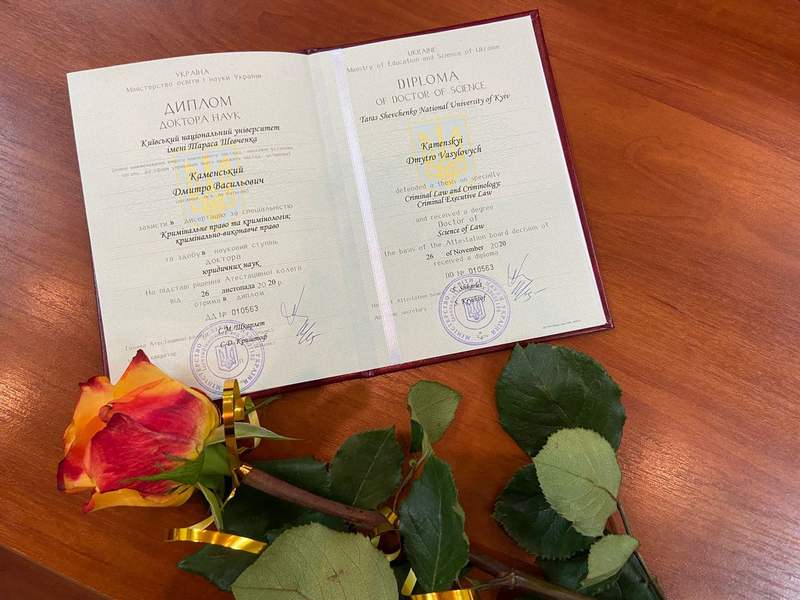 УКРАЇНА
Міністерство освіти і науки України
ДИПЛОМ
ДОКТОРА НАУК
Київський національний університет
імені Тараса Шевченка
Каменський
Дмитро Васильович
захистив дисертацію за спеціальністю
Кримінальне право та кримінологія;
кримінально-виконавче право
та здобув науковий ступінь
доктора
юридичних наук
На підставі рішення Атестаційної колегії
від 26 листопада 2020 р.
отримав диплом
ДД № 010563
Голова Атестаційної колегії
С.М. Шкарлет
UKRAINE
Ministry of Education and Science of Ukraine
DIPLOMA
OF DOCTOR OF SCIENCE
Taras Shevchenko National University of Kyiv
Kamenskyi
Dmytro Vasylovych
defended a thesis on specialty
Criminal Law and Criminology;
Criminal Executive Law
and received a degree
Doctor of
Science of Law
the basis of the Attestation board decision of
26 of November 2020
received a diploma
DD № 010563
Attestation board
secretary